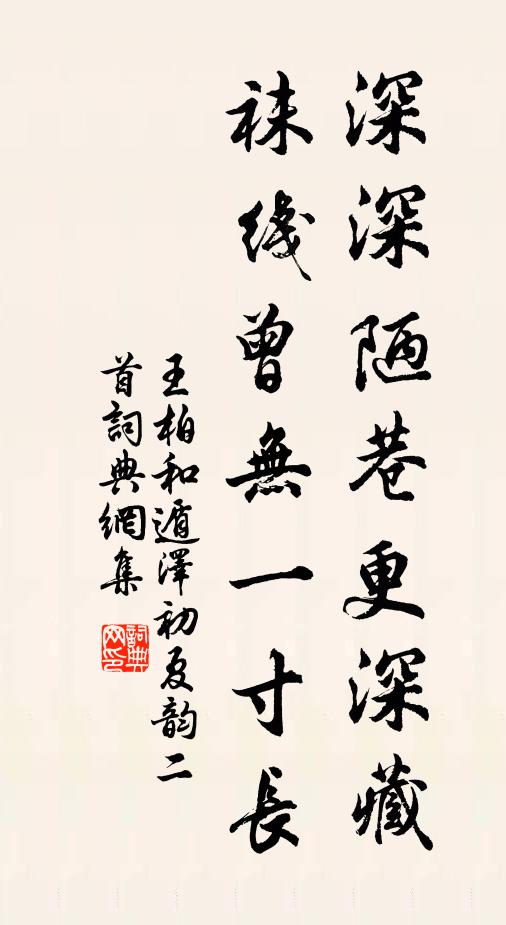 深深陋巷更深藏
袜线曾無一寸長
王柏和遁澤初夏韵二
首詞典網集
詞典網印